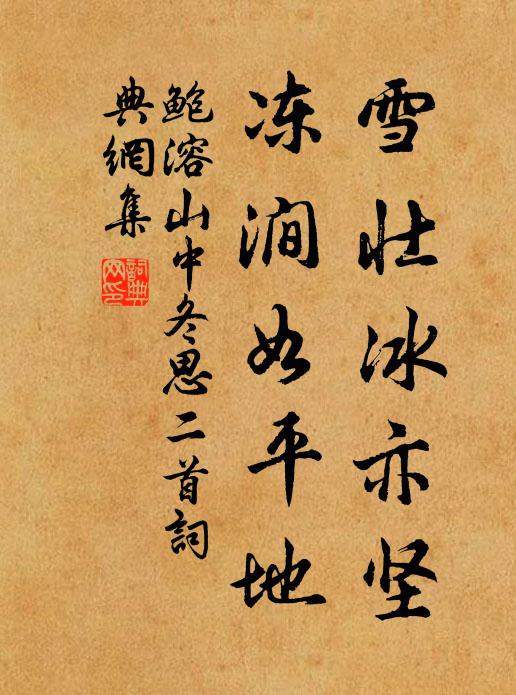 雪壮冰亦坚
冻涧如平地
鲍溶山中冬思二首詞
典網集
詞典網印